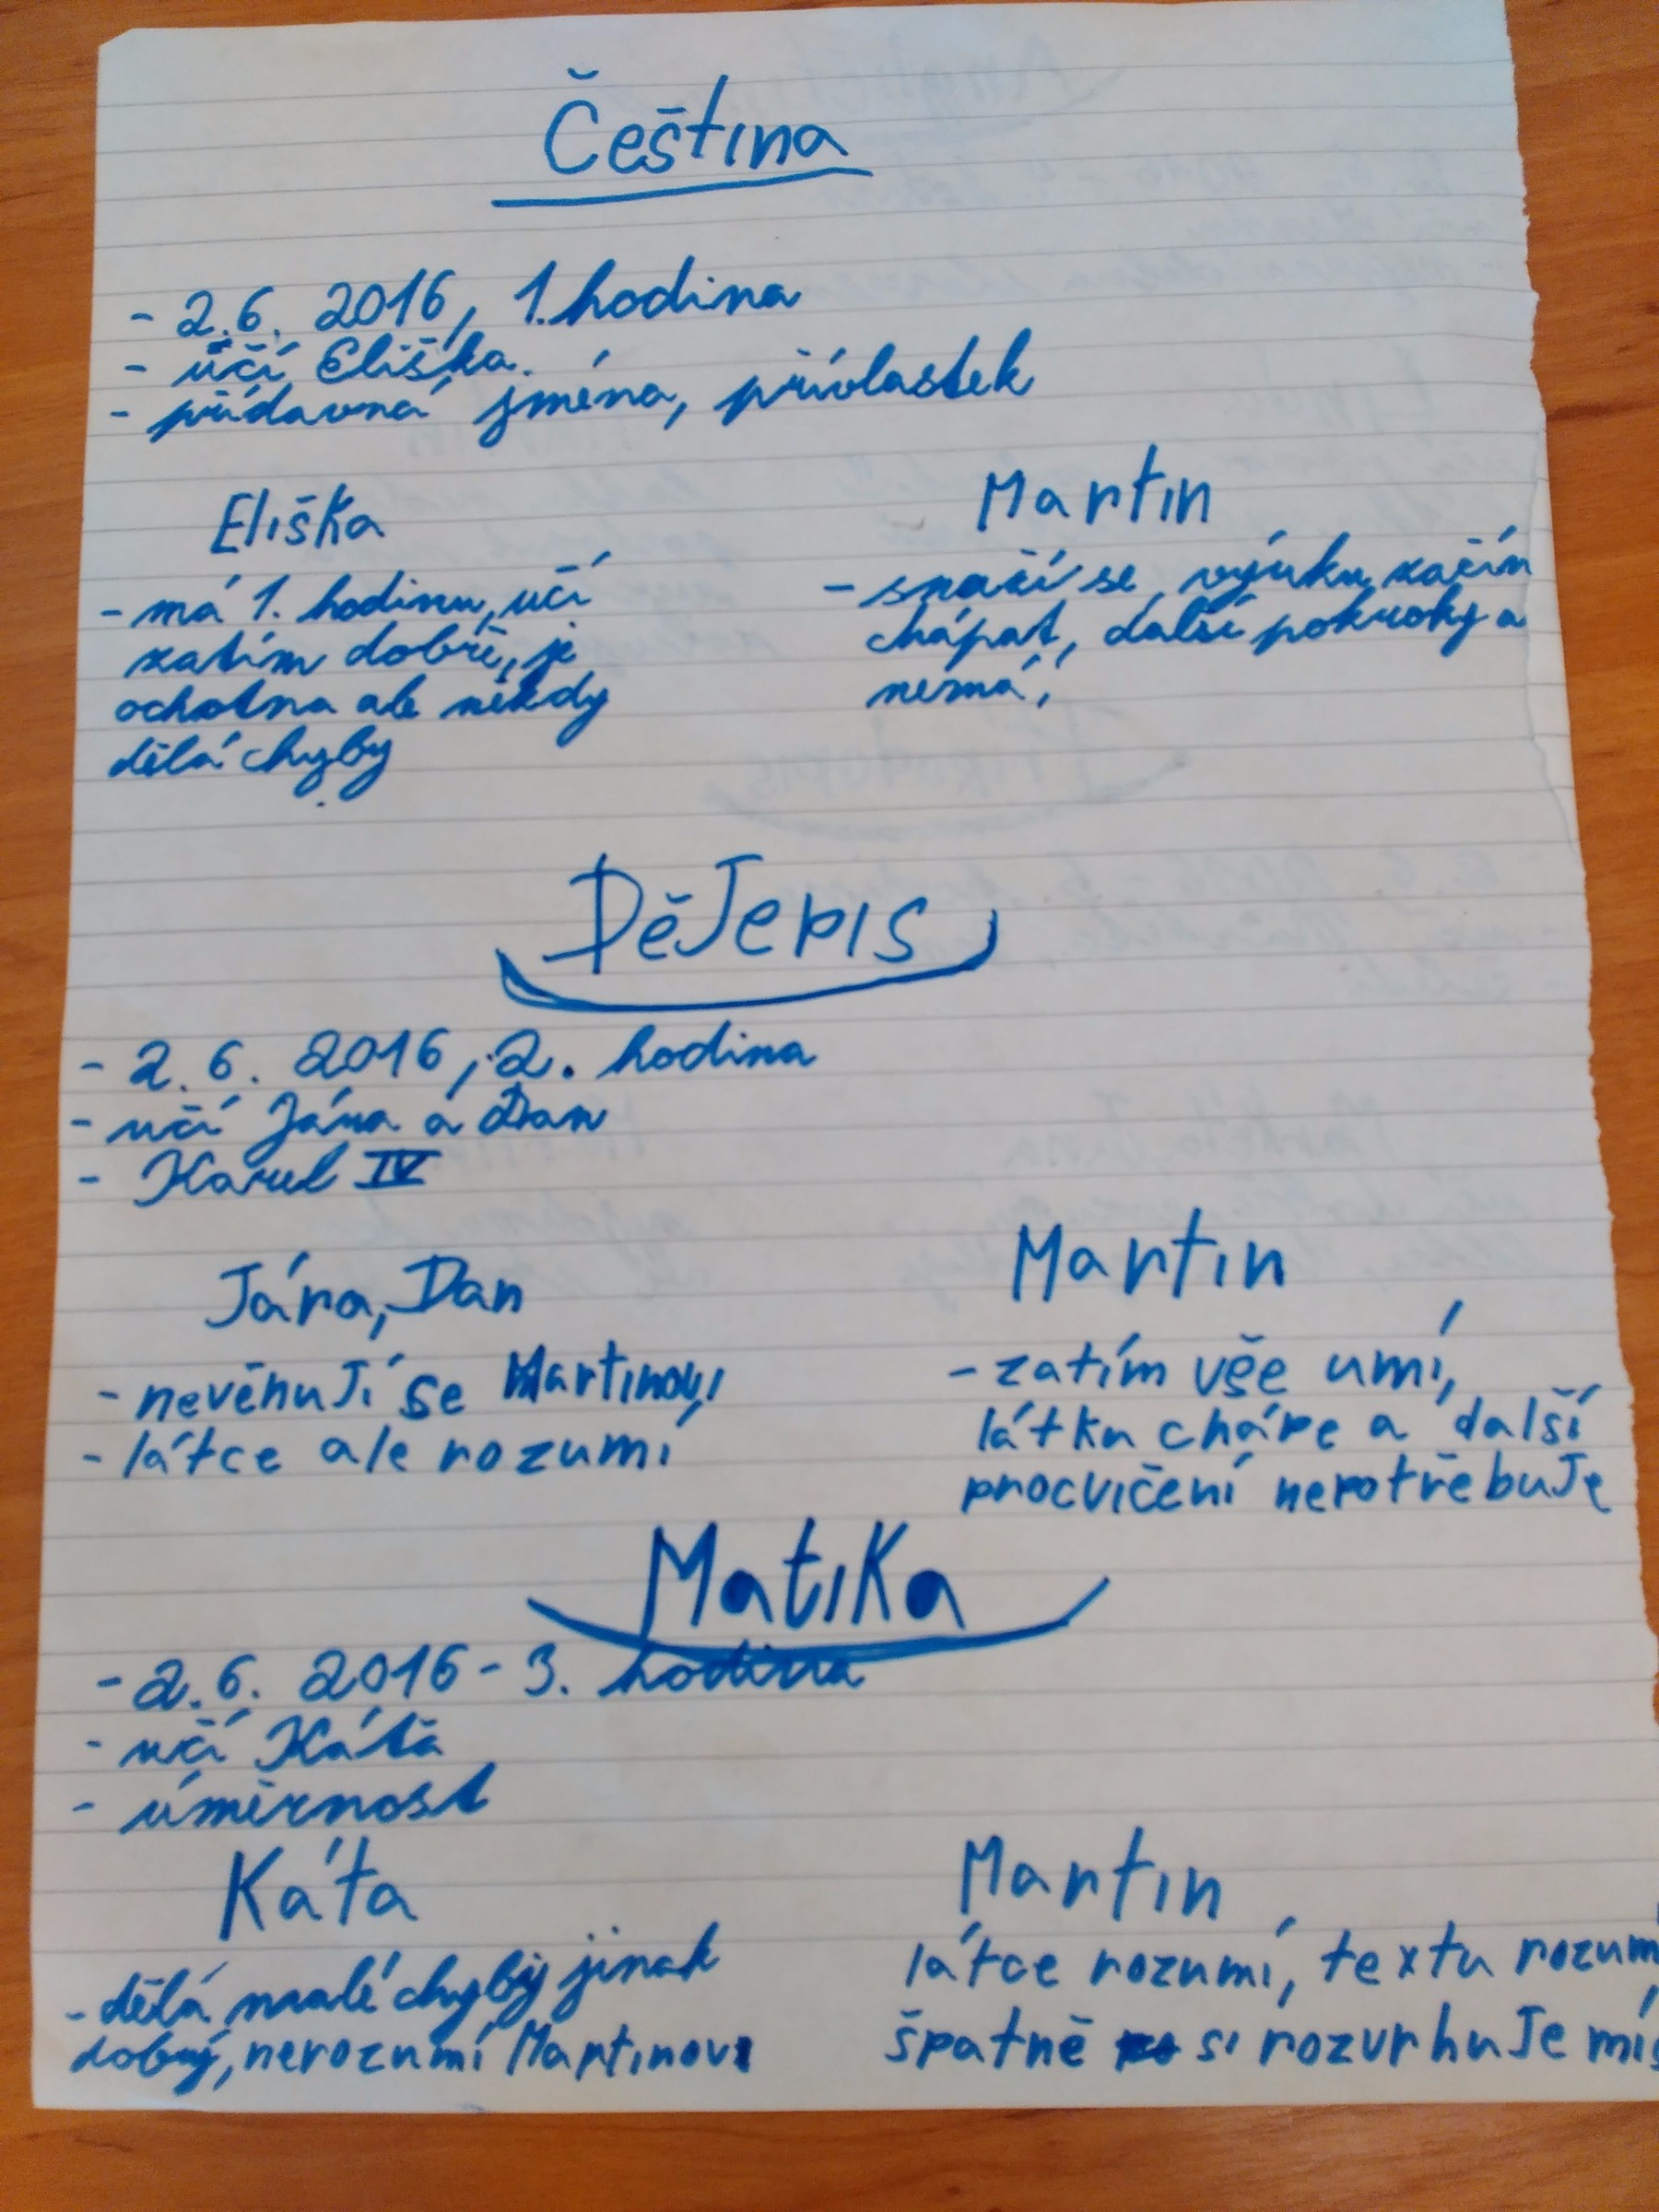 Čeština
- 2.6. 2016, 1. hodina
- učí Eliška.
- přídavná jména, přívlastek
Eliška
- má 1. hodinu, učí
zatím dobře, je
ochotna ale někdy
dělá chyby
Martin
- snaží se, výuku začín
chápat, další pokroky a
nemá,
DěJepis
- 2.6. 2016, 2. hodina
- učí Jára a Dan
- Karel IV
Jára, Dan
- nevěnuJí se Martinovi
- látce ale rozumí
Martin
- zatím vše umí,
látku chápe a další
procvičení nepotřebuJe
Matika
- 2.6. 2016 - 3. hodina
- učí Káťa
- úměrnost
Káťa
- dělá malé chyby jinak
dobrý, nerozumí Martinovi
Martin
látce rozumí, textu rozum
špatně si rozvrhuJe mís